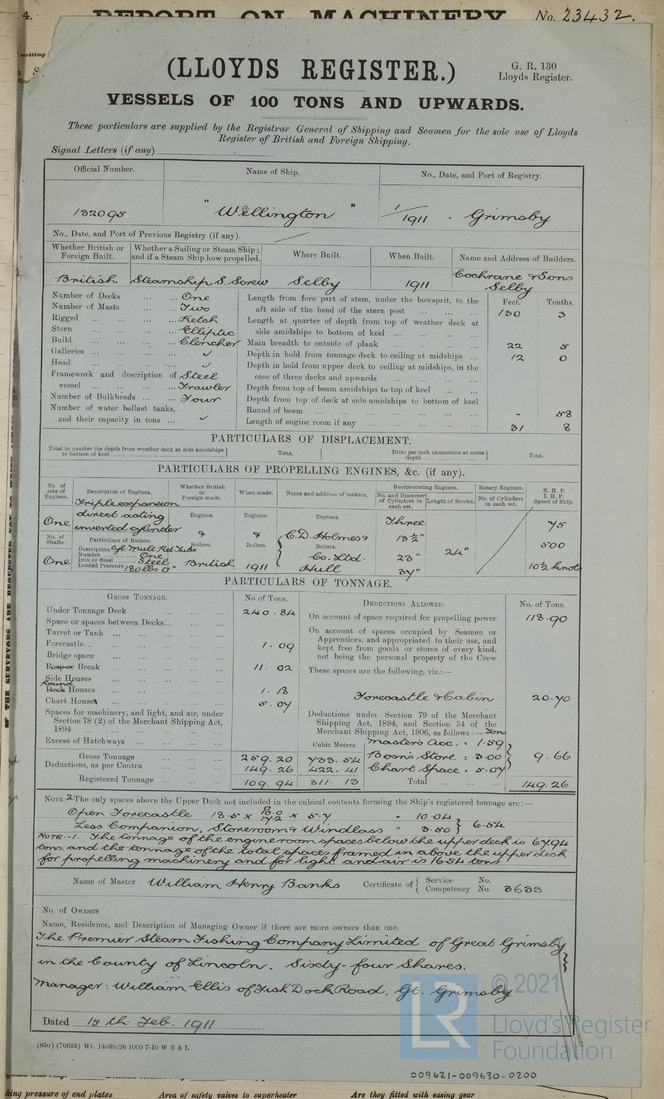 4. REPORT ON MACHINERY No. 23432.
(LLOYDS REGISTER.)
G. R. 130
Lloyds Register.
VESSELS OF 100 TONS AND UPWARDS.
These particulars are supplied by the Registrar General of Shipping and Seamen for the sole use of Lloyds
Register of British and Foreign Shipping.
Signal Letters (if any)
Official Number. Name of Ship. No., Date, and Port of Registry.
132095 "Wellington" 1/1911 . Grimsby
No., Date, and Port of Previous Registry (if any).
Whether British or Foreign Built. Whether a Sailing or Steam Ship; and if a Steam Ship how propelled. Where Built. When Built. Name and Address of Builders.
British Steamship S. Screw Selby 1911 Cochrane & Sons Selby
Number of Decks ... One
Number of Masts ... Two
Rigged ... Ketch
Stern ... Elliptic
Build ... Clencher
Galleries ... ✓
Head ... ✓
Framework and description of vessel ... Steel Trawler
Number of Bulkheads ... Four
Number of water ballast tanks, and their capacity in tons ... ✓
Feet. Tenths.
Length from fore part of stem, under the bowsprit, to the aft side of the head of the stern post ... 130 3
Length at quarter of depth from top of weather deck at side amidships to bottom of keel ...
Main breadth to outside of plank ... 22 5
Depth in hold from tonnage deck to ceiling at midships ... 12 0
Depth in hold from upper deck to ceiling at midships, in the case of three decks and upwards ...
Depth from top of beam amidships to top of keel ...
Depth from top of deck at side amidships to bottom of keel
Round of beam ... - 58
Length of engine room if any ... 31 8
PARTICULARS OF DISPLACEMENT.
Total to quarter the depth from weather deck at side amidships to bottom of keel Tons. Ditto per inch immersion at same depth Tons.
PARTICULARS OF PROPELLING ENGINES, &c. (if any).
No. of sets of Engines. Description of Engines. Whether British or Foreign made. When made. Name and address of makers. Reciprocating Engines. Rotary Engines. N. H. P. I. H. P. Speed of Ship.
No. and Diameter of Cylinders in each set. Length of Stroke. No. of Cylinders in each set.
One Triple expansion direct acting inverted cylinder
Engines. Engines. Engines.
No. of Shafts. Particulars of Boilers. Boilers. Boilers. Boilers.
One Description Cyl. Mult. Ret. Tube
Number One
Iron or Steel Steel
Loaded Pressure 180 lbs □"
British & 1911 & C. D. Holmes & Co. Ltd. Hull
Three 13½" 23" 37" 24"
75
500
10½ knots
PARTICULARS OF TONNAGE.
GROSS TONNAGE. No of Tons. DEDUCTIONS ALLOWED. No. of Tons.
Under Tonnage Deck ... 240.84
Space or spaces between Decks ...
Turret or Tank ...
Forecastle ... 1.09
Bridge space ...
Poop or Break ... 11.02
Side Houses
Deck Round Houses ... 1.18
Chart Houses ... 5.07
Spaces for machinery, and light, and air, under Section 78 (2) of the Merchant Shipping Act, 1894 ...
Excess of Hatchways ...
Cubic Metres
Gross Tonnage 259.20 733.54
Deductions, as per Contra 149.26 422.41
Registered Tonnage 109.94 311.13
On account of space required for propelling power 118.90
On account of spaces occupied by Seamen or Apprentices, and appropriated to their use, and kept free from goods or stores of every kind, not being the personal property of the Crew
These spaces are the following, viz.:—
Forecastle & Cabin 20.70
Deductions under Section 79 of the Merchant Shipping Act, 1894, and Section 54 of the Merchant Shipping Act, 1906, as follows:— Tons
Master's Acc. = 1.59
Boa'n Store = 3.00
Chart Space = 5.07
9.66
Total ... 149.26
NOTE 2. The only spaces above the Upper Deck not included in the cubical contents forming the Ship's registered tonnage are:—
Open Forecastle = 10.04
Less Companion, Storeroom & Windlass = 3.50 } 6.54
NOTE.-1. The tonnage of the engine room spaces below the upper deck is 67.94
tons, and the tonnage of the total spaces framed in above the upper deck
for propelling machinery and for light and air is 16.54 tons
Name of Master William Henry Banks Certificate of { Service No. Competency No. 3633
No. of Owners
Name, Residence, and Description of Managing Owner if there are more owners than one.
The Premier Steam Fishing Company Limited of Great Grimsby
in the County of Lincoln. Sixty-four Shares.
Manager: William Ellis of Fish Dock Road, Gt. Grimsby
Dated 15th Feb. 1911
© 2021
LR
Lloyd's Register
Foundation
009621-009630-0200
king pressure of end plates Area of safety valves to superheater Are they fitted with easing gear